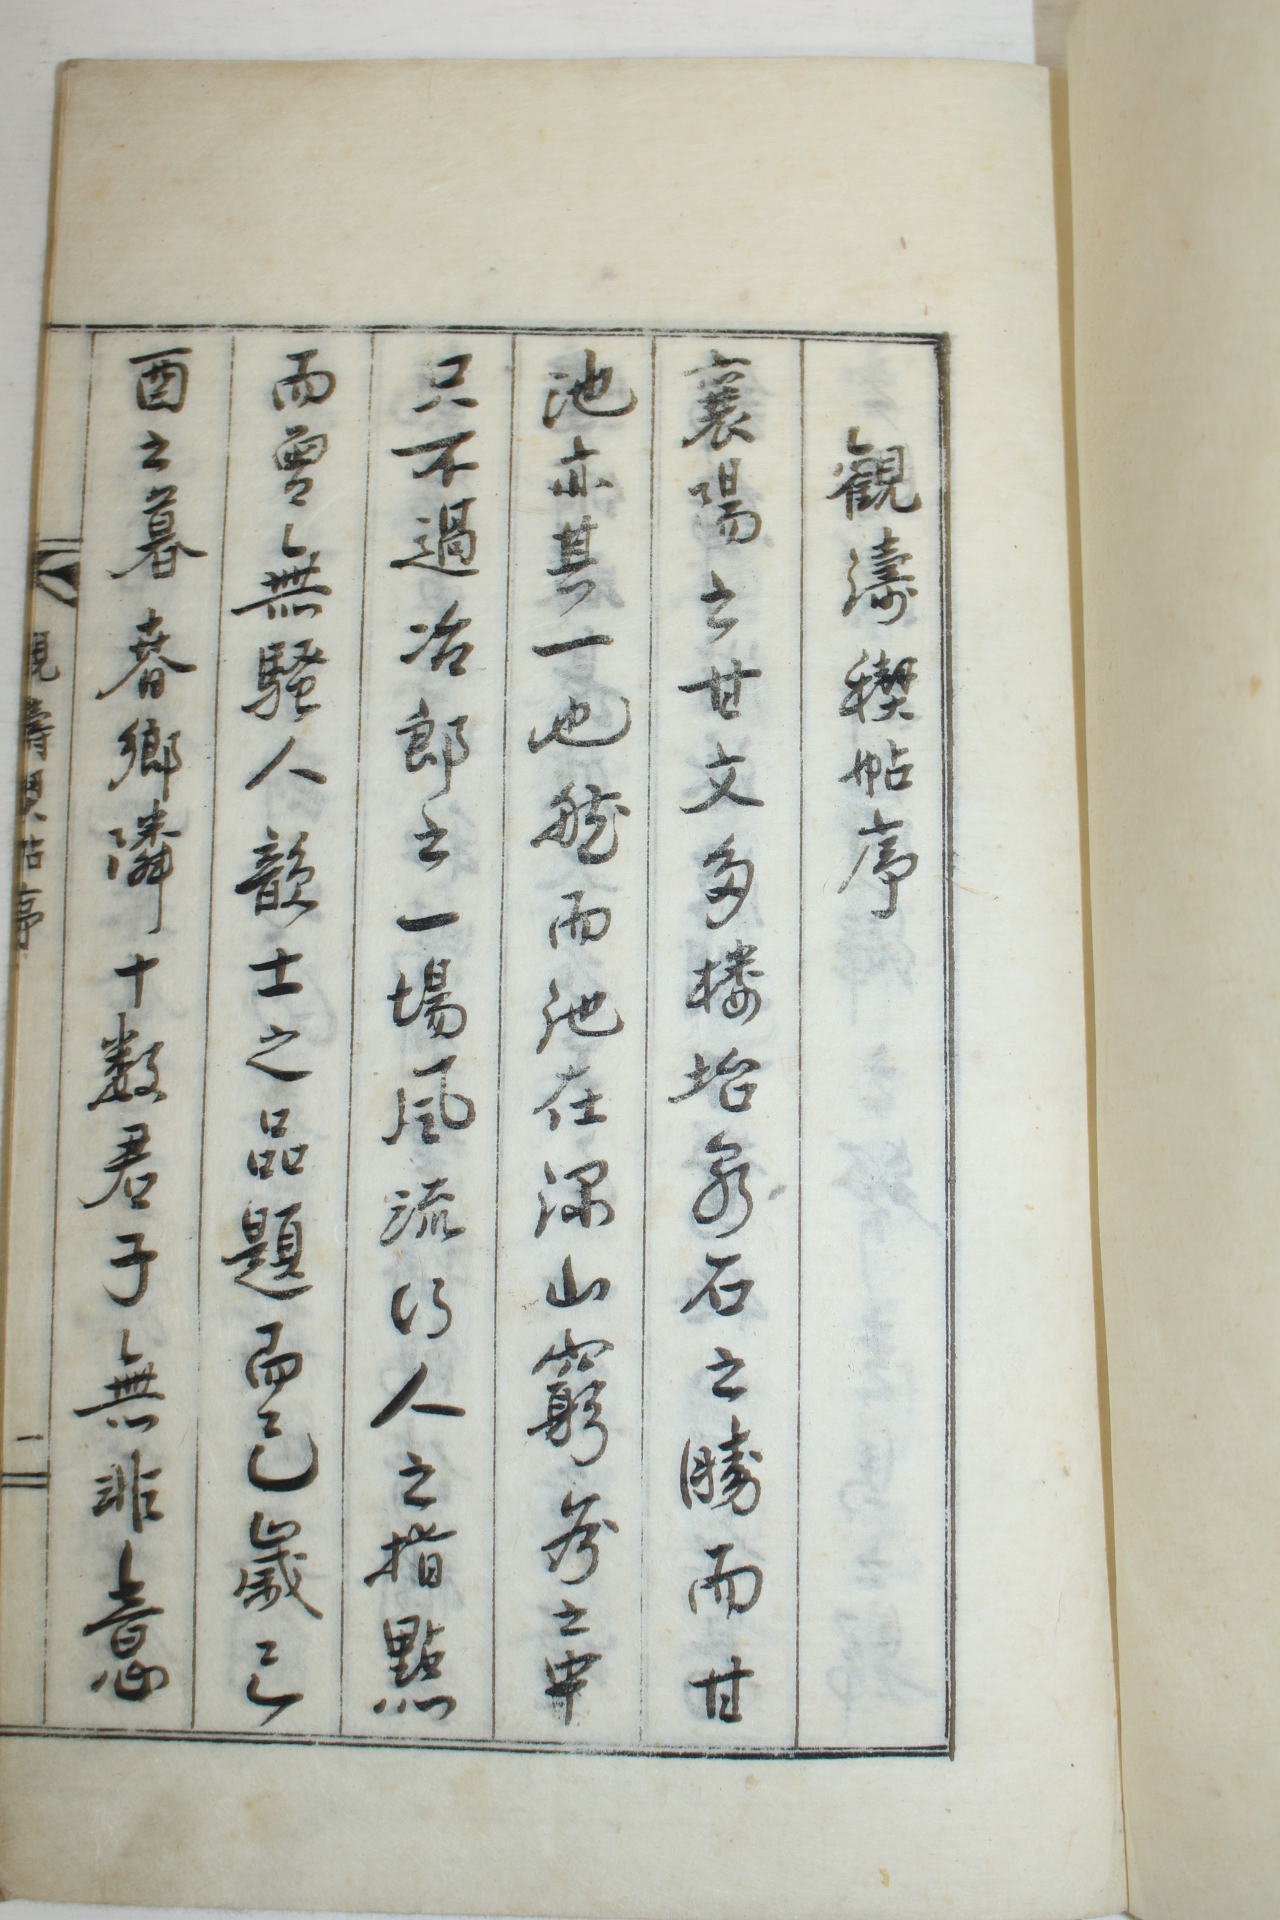 觀濤稧帖序
襄陽之甘文多樓坮泉石之勝而甘
池亦其一也然而池在深山窮谷之中
只不過冶郎之一場風流行人之指點
而曾無騷人韻士之品題而已歲己
酉之暮春鄉隣十數君子無非意
觀濤稧帖序
一